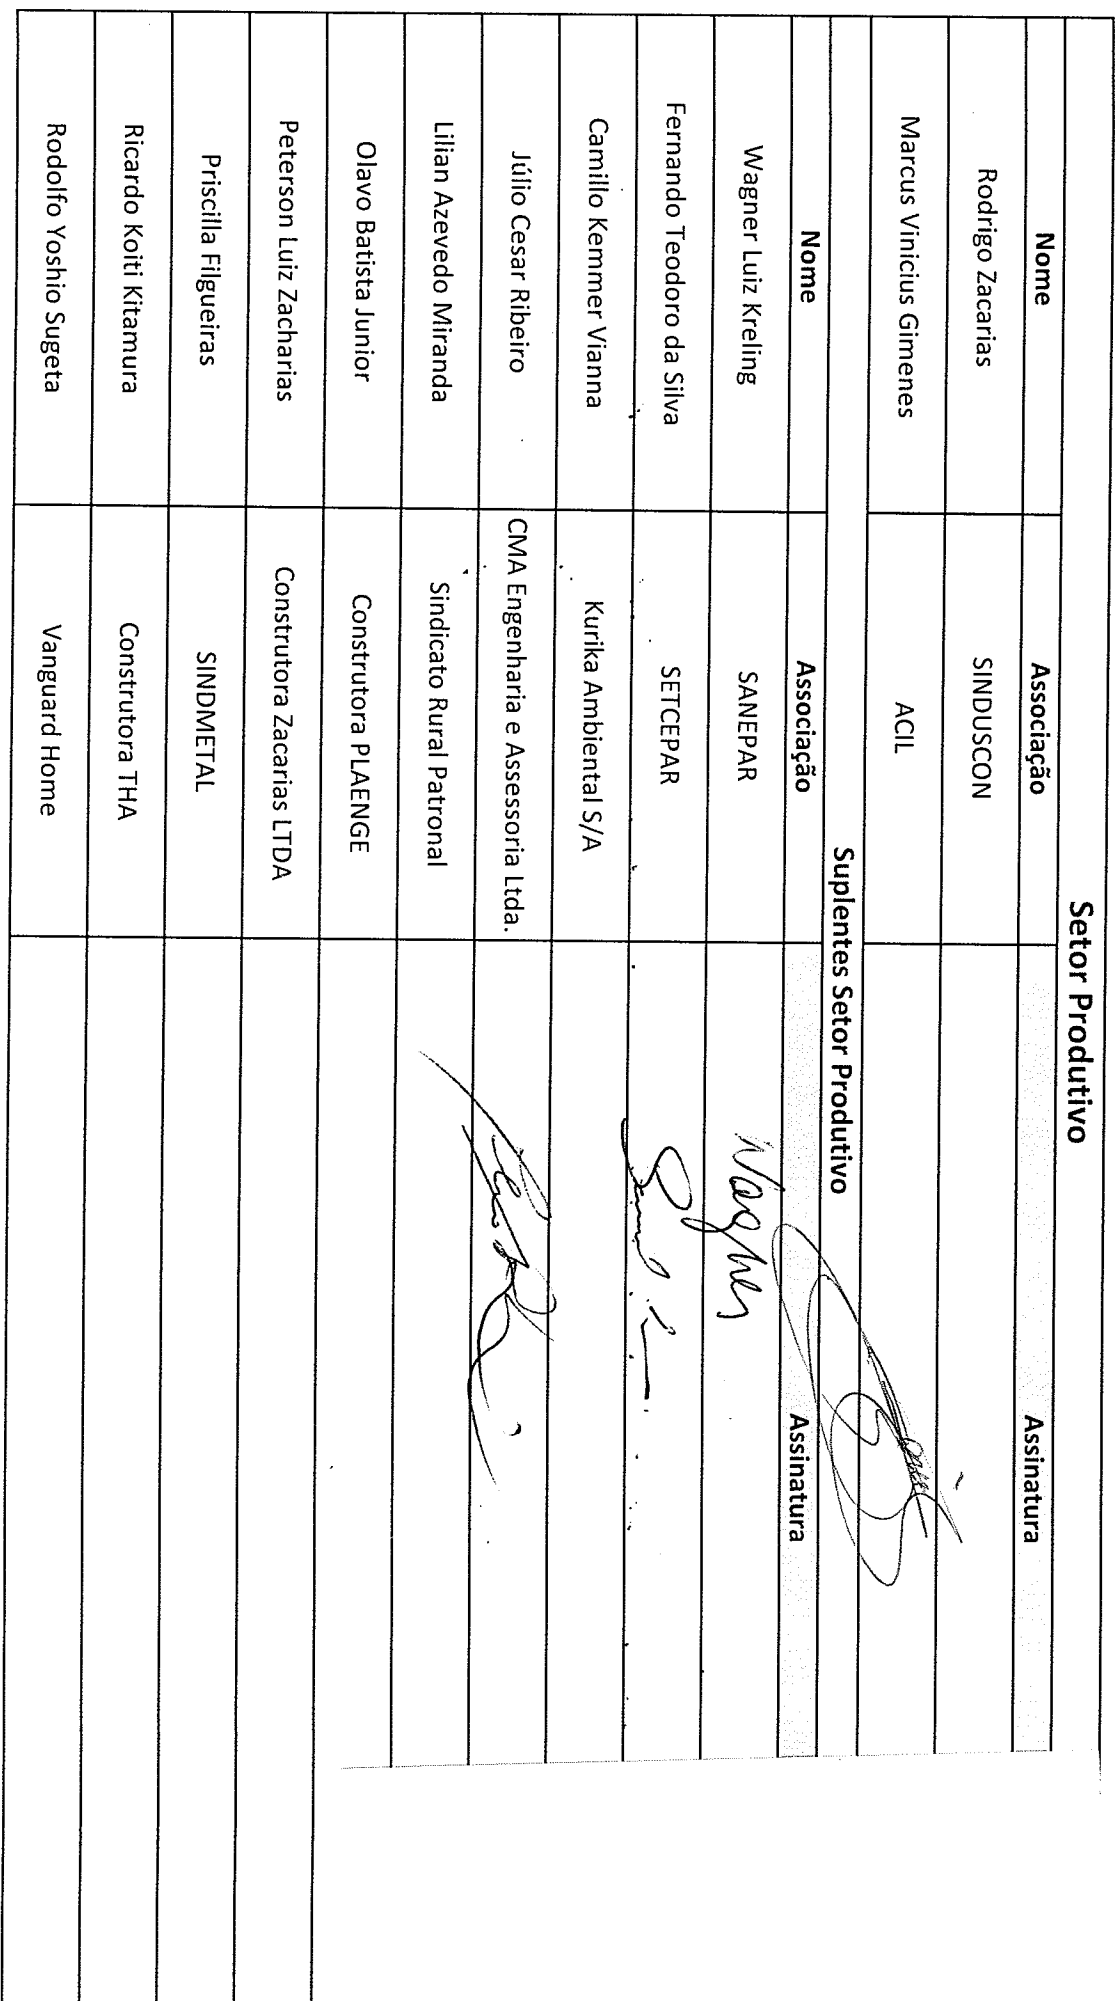 Setor Produtivo
Nome Associação Assinatura
Rodrigo Zacarias SINDUSCON
Marcus Vinicius Gimenes ACIL
Suplentes Setor Produtivo
Nome Associação Assinatura
Wagner Luiz Kreling SANEPAR Wagner
Fernando Teodoro da Silva SETCEPAR
Camillo Kemmer Vianna Kurika Ambiental S/A
Júlio Cesar Ribeiro CMA Engenharia e Assessoria Ltda.
Lilian Azevedo Miranda Sindicato Rural Patronal
Olavo Batista Junior Construtora PLAENGE
Peterson Luiz Zacharias Construtora Zacarias LTDA
Priscilla Filgueiras SINDMETAL
Ricardo Koiti Kitamura Construtora THA
Rodolfo Yoshio Sugeta Vanguard Home